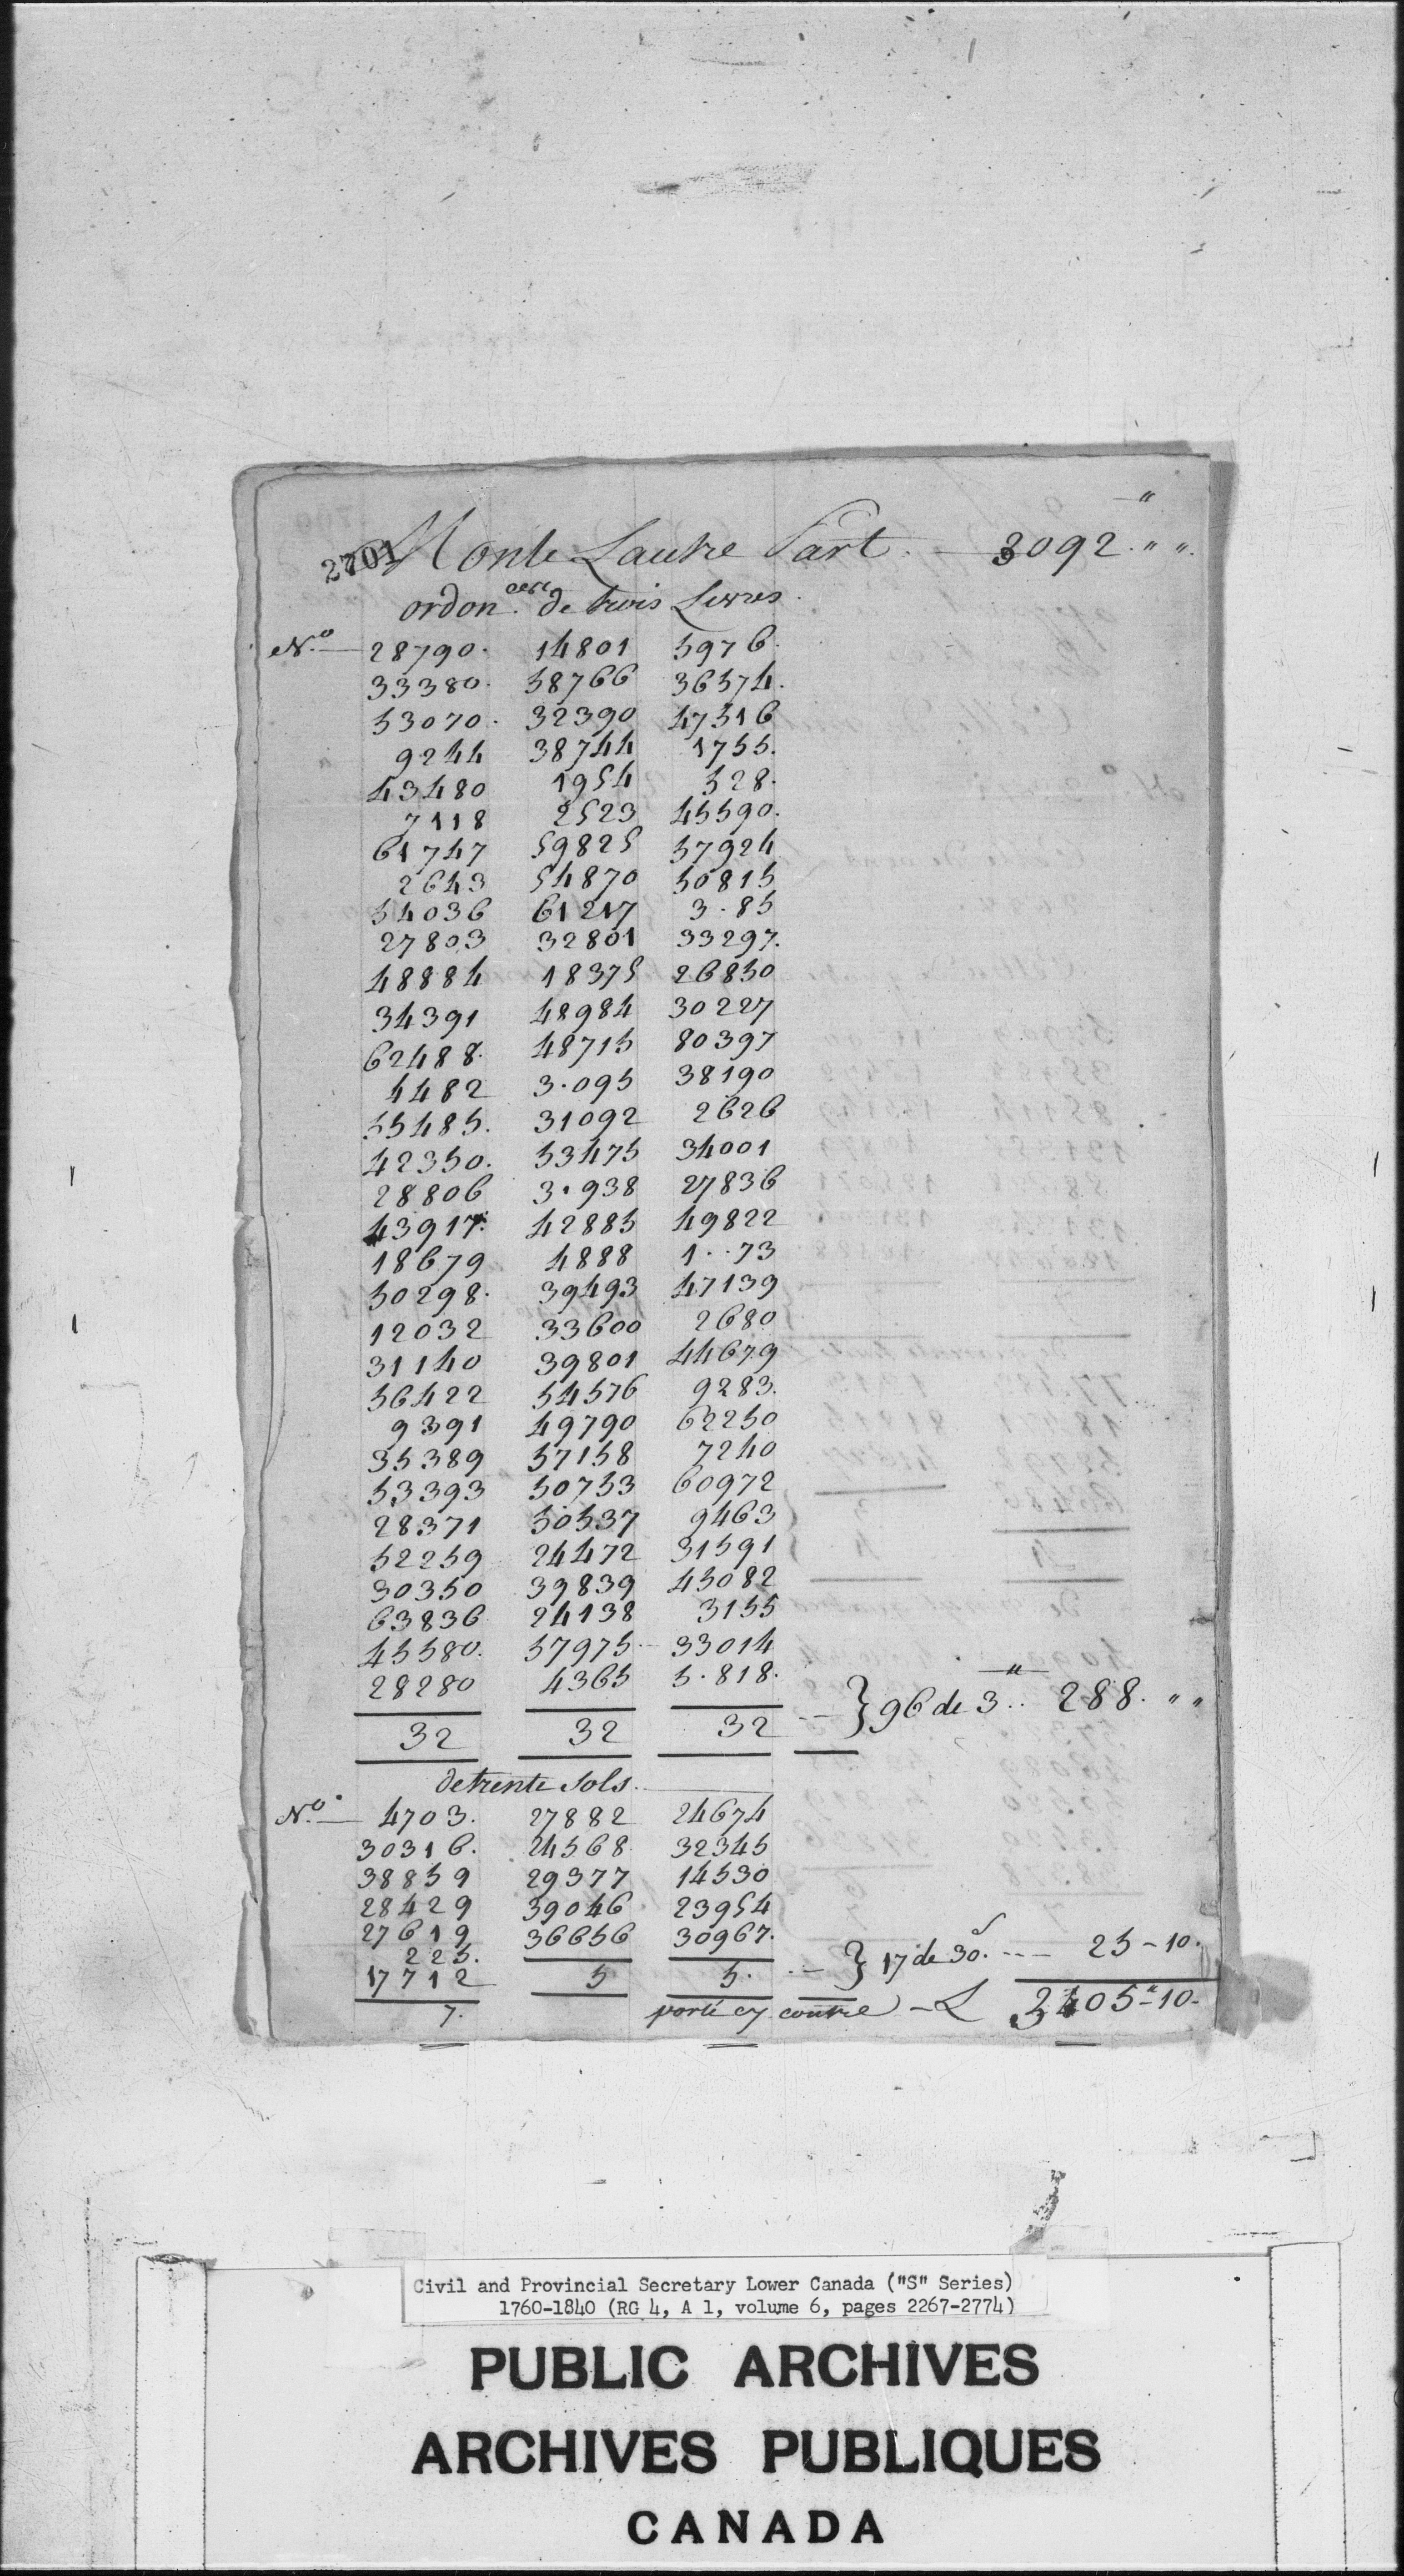 2701 Monte Lautre Part. — 3092."".
ordon.ces de trois Livres.
No. — 28790. 14801 5976.
33380. 58766 36574.
53070. 32390 47516
9244 38744 1755.
43480 1954 528.
7118 2523 45590.
61747 59825 57924
2643 54870 50815
54036 61217 3.85
27803 32801 33297.
48884 18375 26850
34391 48984 30227
62488. 48715 80397
4482 3.095 38190
55485. 31092 2626
42350. 53475 34001
28806 3.938 27836
43917. 42885 49822
18679 4888 1..73
50298. 39493 47139
12032 33600 2680
31140 39801 44679
56422 54576 9283.
9391 49790 62250
35389 57158 7240
53393 50753 60972
28371 50537 9463
52259 24472 31591
30350 39839 45082
63836 24138 3155
45580. 57975 33014
28280 4365 5.818.
32 32 32 — } 96 de 3" .. 288. ""
de trente sols.
No. — 4703. 27882 24674
30316. 24568 32345
38859 29377 14530
28429 39046 23954
27619 36656 30967.
225.
17712 5 5. — } 17 de 30.s --- 25-10.
7. porté cy contre — L 3405"-10-
Civil and Provincial Secretary Lower Canada ("S" Series)
1760-1840 (RG 4, A 1, volume 6, pages 2267-2774)
PUBLIC ARCHIVES
ARCHIVES PUBLIQUES
CANADA